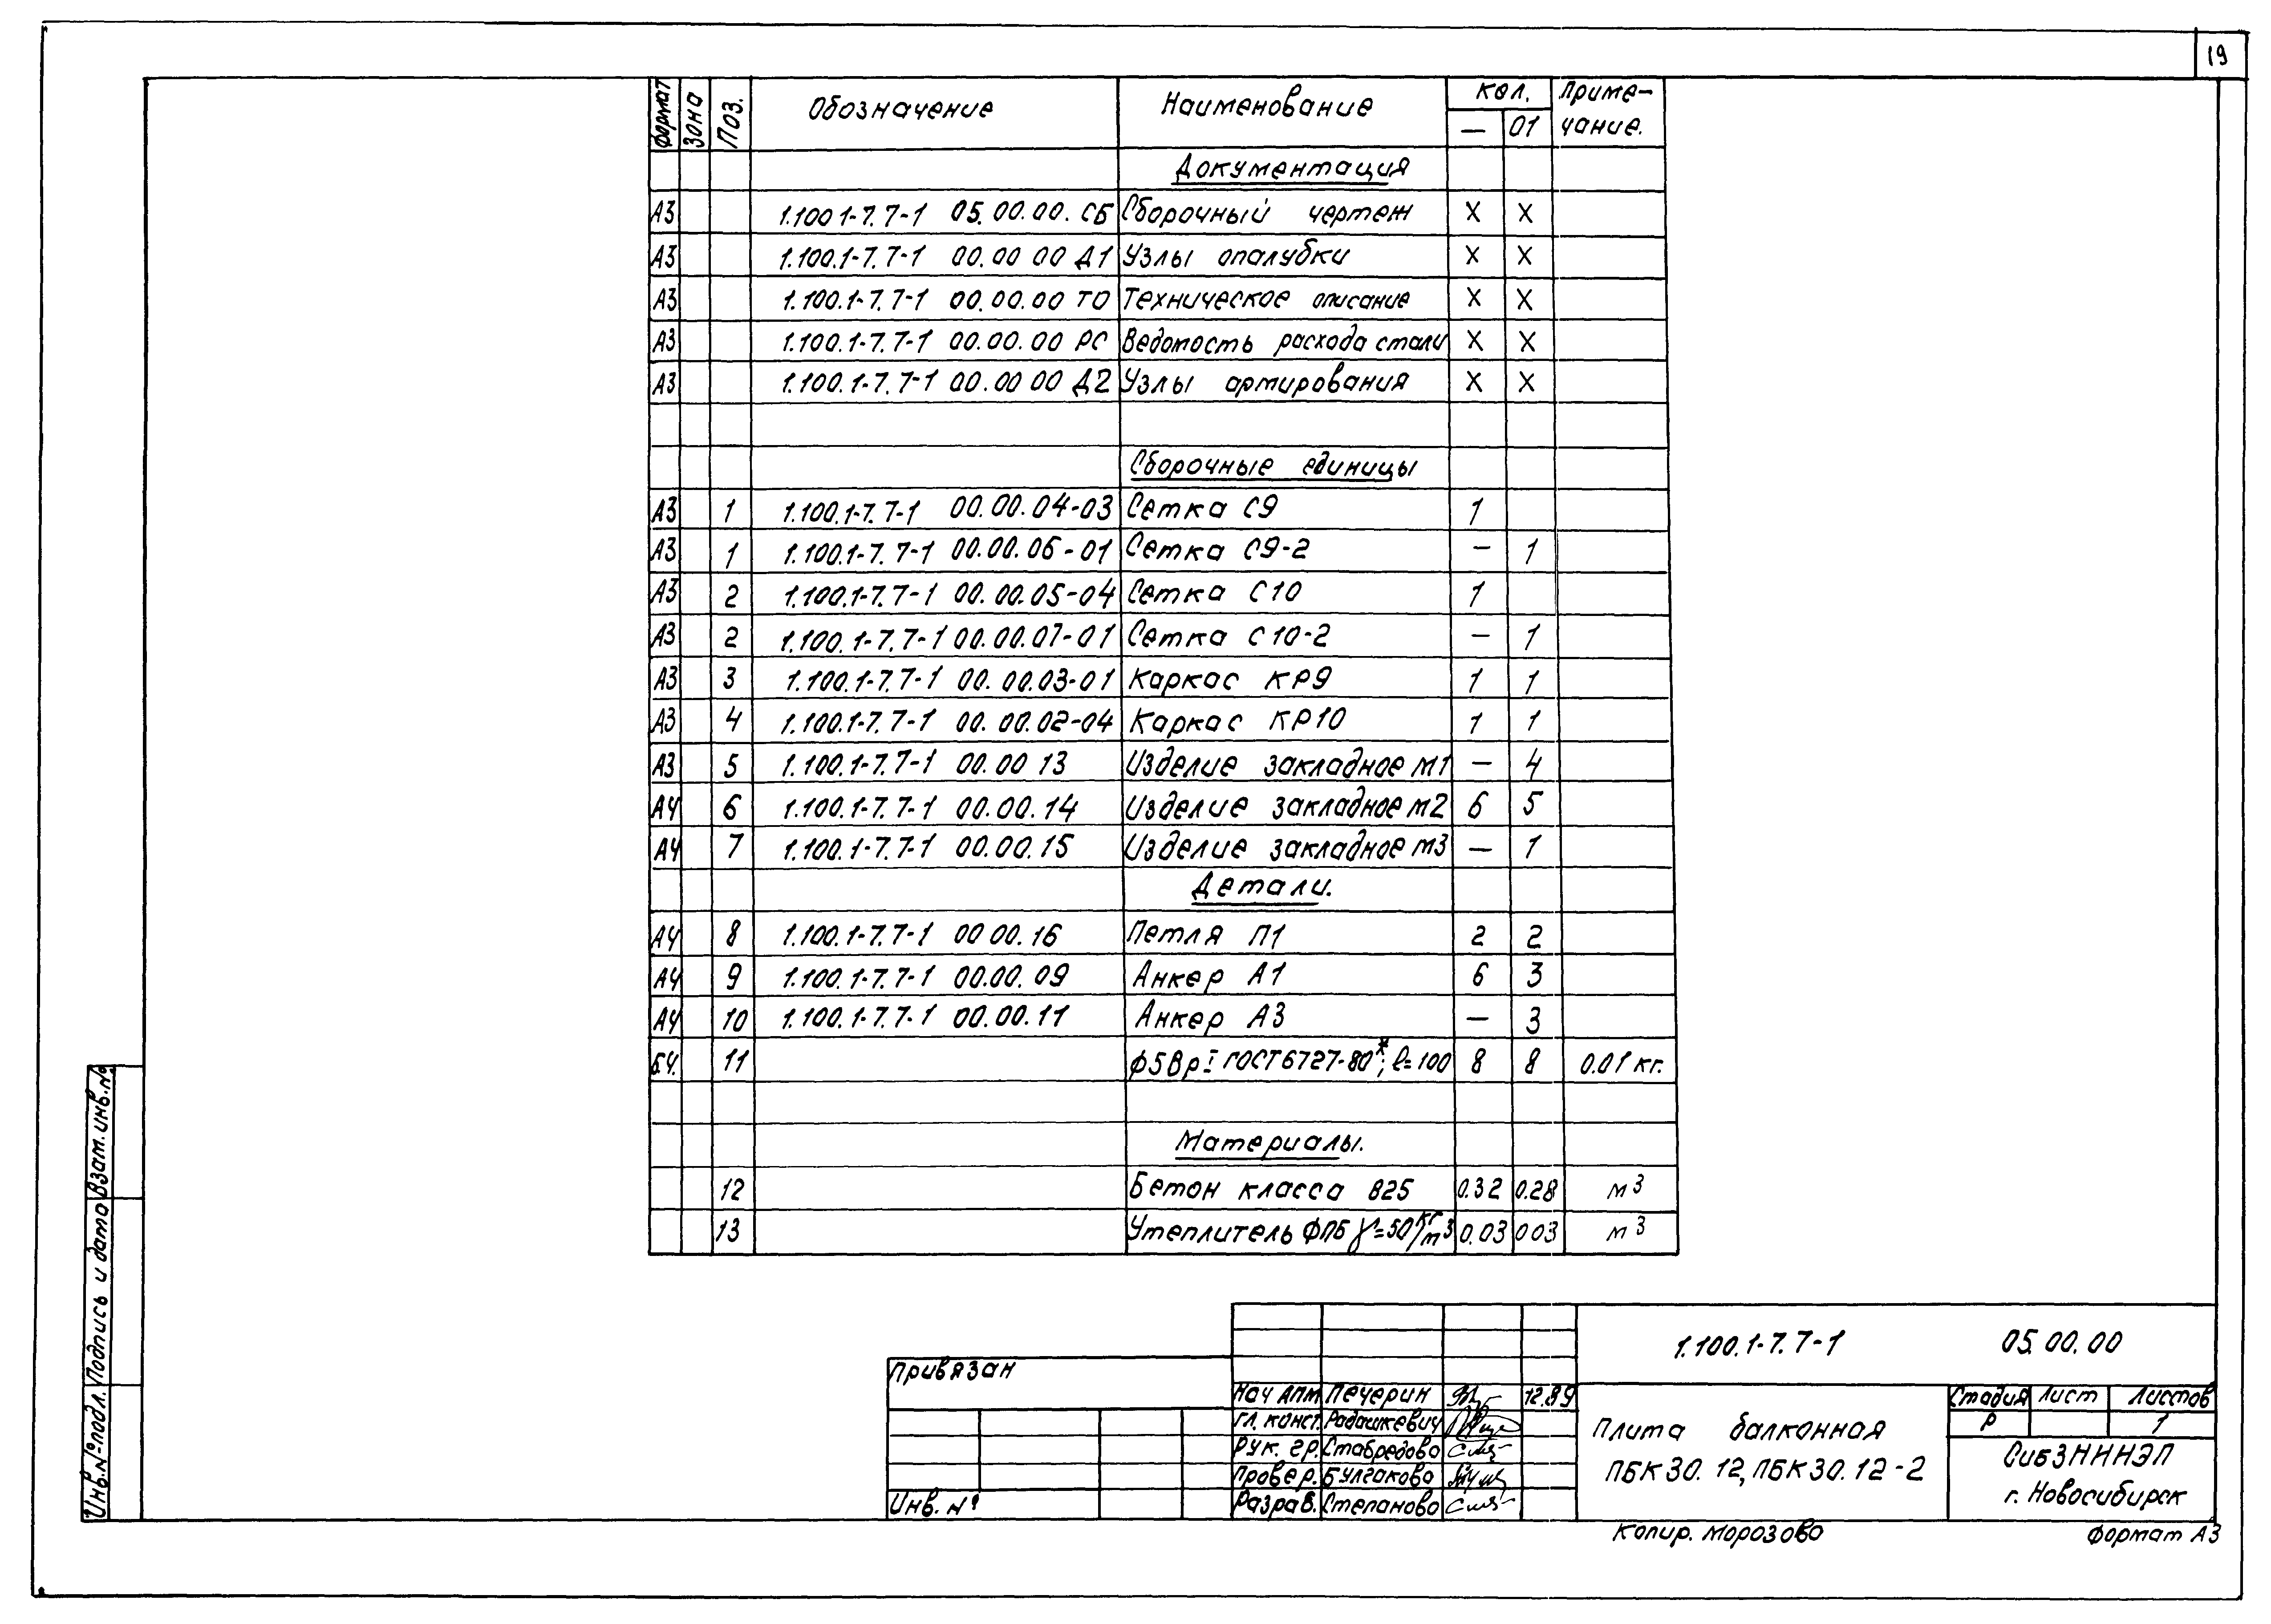 19
Формат Зона Поз. Обозначение Наименование Кол. Приме-
— 01 чание.
Документация
А3 1.100 1-7.7-1 05.00.00. СБ Сборочный чертеж X X
А3 1.100.1-7.7-1 00.00 00 Д1 Узлы опалубки X X
А3 1.100.1-7.7-1 00.00.00 ТО Техническое описание X X
А3 1.100.1-7.7-1 00.00.00 РС Ведомость расхода стали X X
А3 1.100.1-7.7-1 00.00 00 Д2 Узлы армирования X X
Сборочные единицы
А3 1 1.100.1-7.7-1 00.00.04-03 Сетка С9 1
А3 1 1.100.1-7.7-1 00.00.06-01 Сетка С9-2 — 1
А3 2 1.100.1-7.7-1 00.00.05-04 Сетка С10 1
А3 2 1.100.1-7.7-1 00.00.07-01 Сетка С10-2 — 1
А3 3 1.100.1-7.7-1 00.00.03-01 Каркас КР9 1 1
А3 4 1.100.1-7.7-1 00.00.02-04 Каркас КР10 1 1
А3 5 1.100.1-7.7-1 00.00 13 Изделие закладное М1 — 4
А4 6 1.100.1-7.7-1 00.00.14 Изделие закладное М2 6 5
А4 7 1.100.1-7.7-1 00.00.15 Изделие закладное М3 — 1
Детали.
А4 8 1.100.1-7.7-1 00 00.16 Петля П1 2 2
А4 9 1.100.1-7.7-1 00.00.09 Анкер А1 6 3
А4 10 1.100.1-7.7-1 00.00.11 Анкер А3 — 3
Б.Ч. 11 Ф5ВрI ГОСТ6727-80*; ℓ=100 8 8 0.01 кг.
Материалы.
12 Бетон класса В25 0.32 0.28 м³
13 Утеплитель ФПБ γ=50 кг/м³ 0.03 003 м³
Инв.№подл. Подпись и дата Взам.инв.№
Привязан
Инв. №
1.100.1-7.7-1 05.00.00
Нач АПМ Печерин 12.89
Гл. конст. Радашкевич
Рук. гр. Стабредова
Провер. Булгакова
Разраб. Степанова
Плита балконная
ПБК30.12, ПБК30.12-2
Стадия Лист Листов
Р 1
СибЗНИИЭП
г. Новосибирск
Копир. Морозова Формат А3